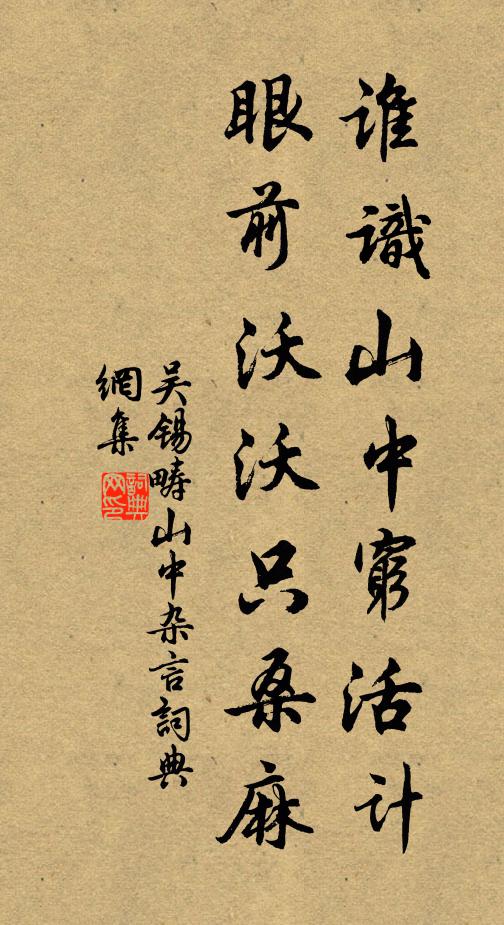 谁識山中窮活計
眼前沃沃只桑麻
吴锡畴山中杂言詞典
網集
詞典
网印